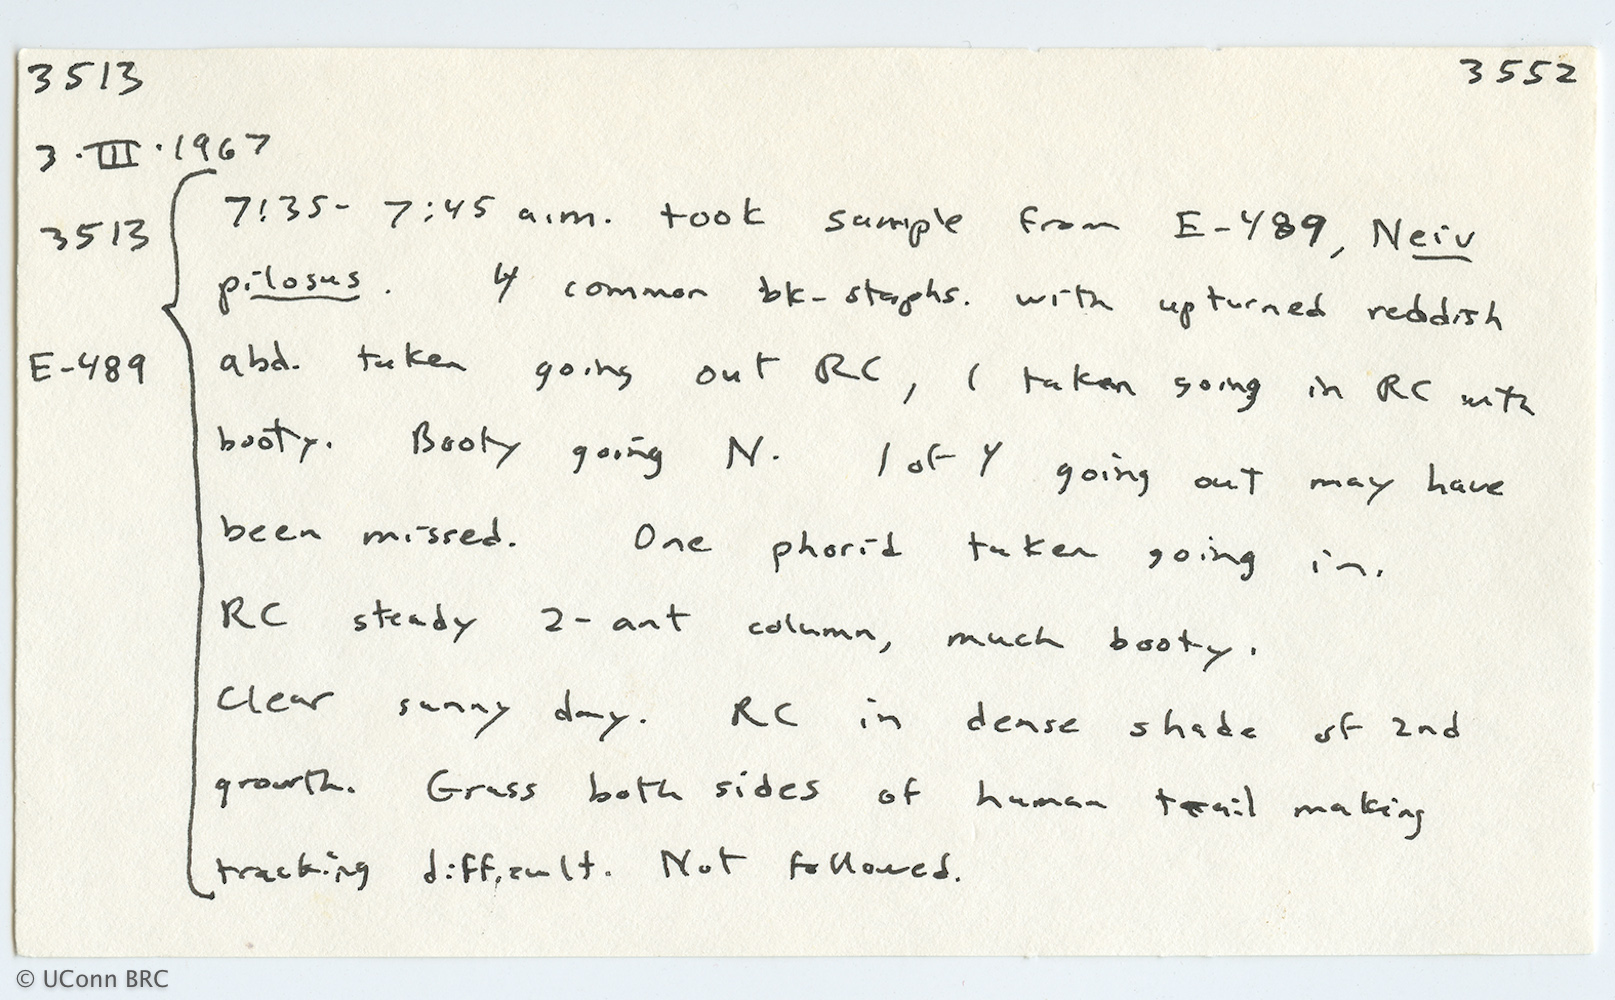 3513 3552
3·III·1967
3513
E-489
7:35- 7:45 a.m. took sample from E-489, Neiv
pilosus. 4 common bk-staphs. with upturned reddish
abd. taken going out RC, 1 taken going in RC with
booty. Booty going N. 1 of 4 going out may have
been missed. One phorid taken going in.
RC steady 2-ant column, much booty.
Clear sunny day. RC in dense shade of 2nd
growth. Grass both sides of human trail making
tracking difficult. Not followed.
© UConn BRC